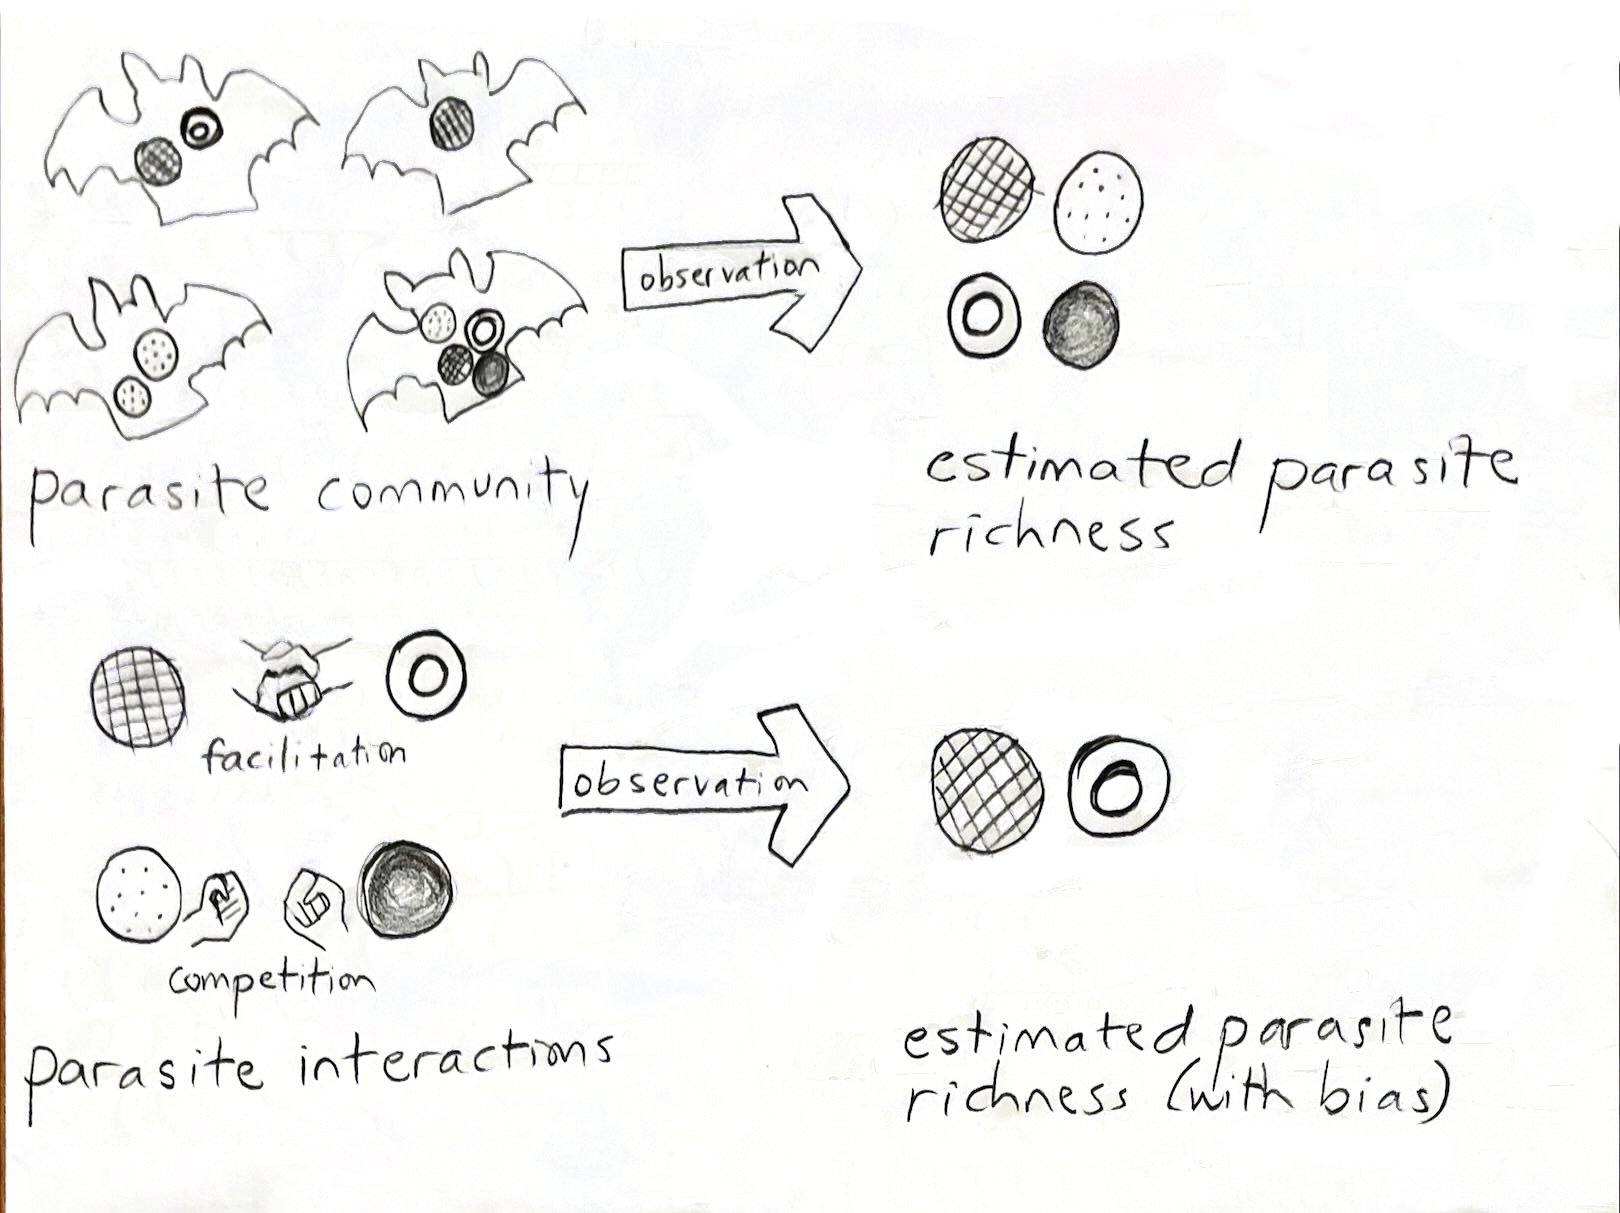 observation
parasite community
estimated parasite
richness
facilitation
observation
competition
parasite interactions
estimated parasite
richness (with bias)